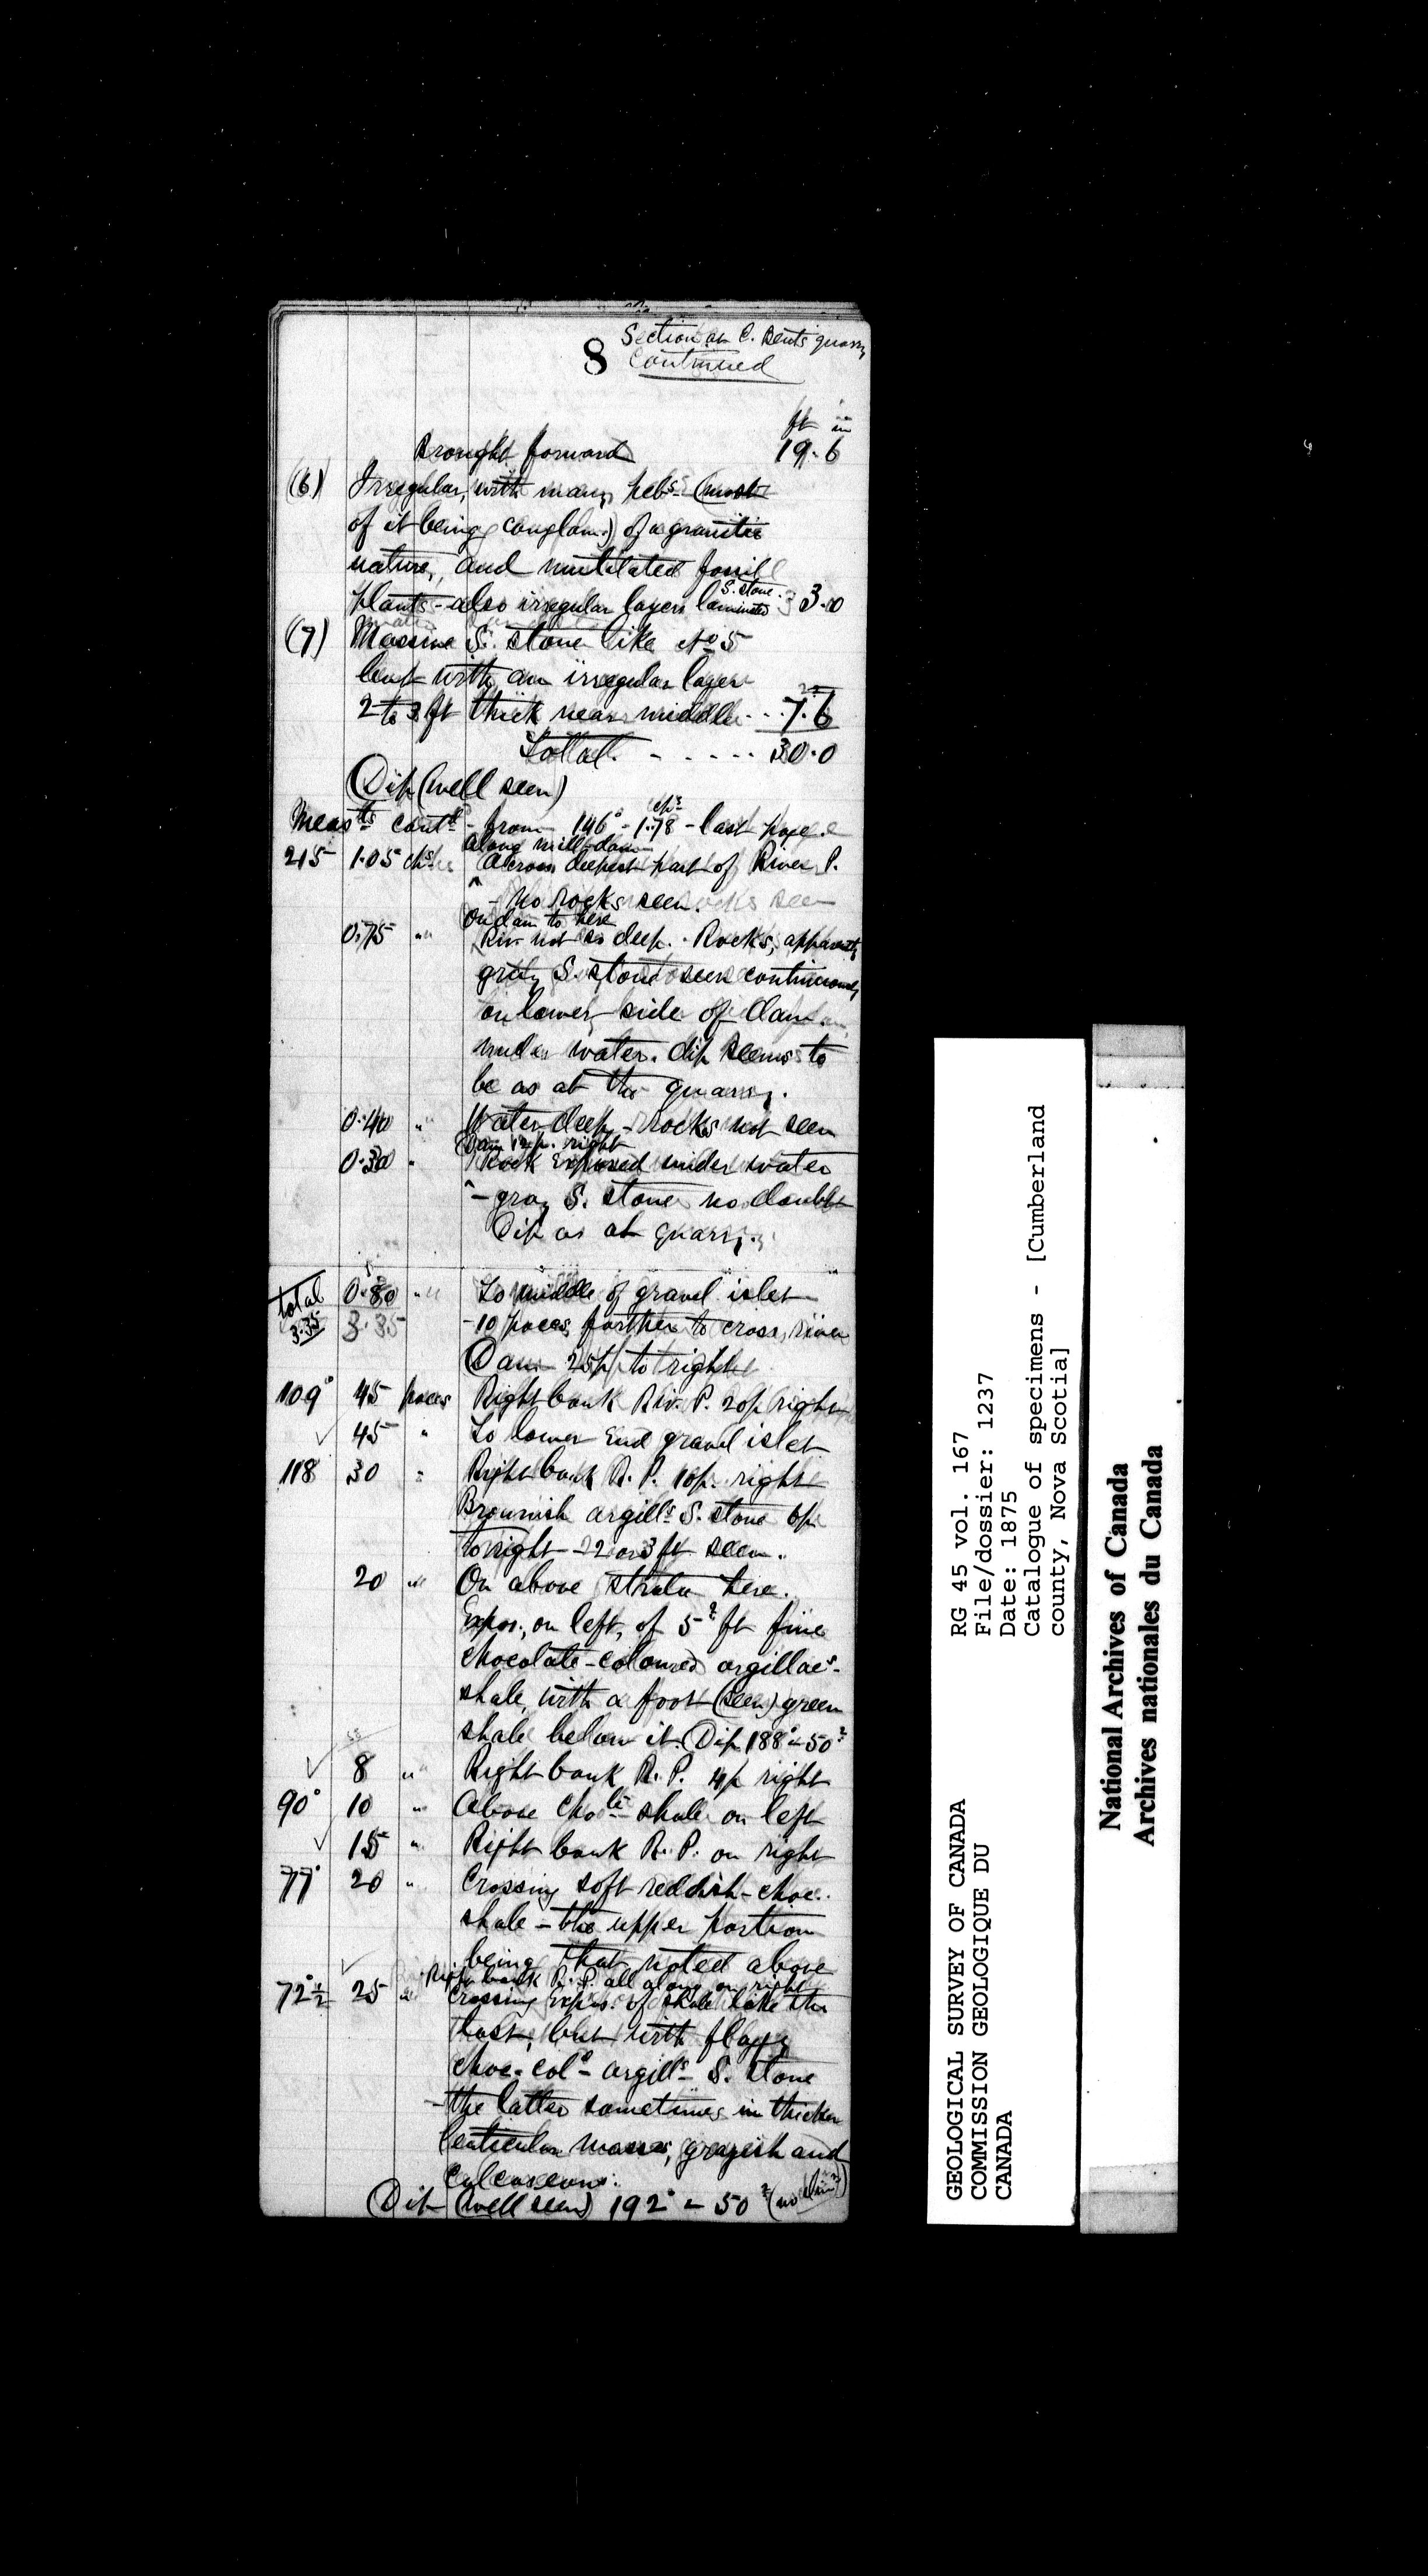 8 Section at C. Bents quarry
Continued
ft in
Brought forward 19.6
(6) Irregular, with many pebs. (most
of it being conglom.) of a granitic
nature, and mutilated fossil
plants - also irregular layers laminated S. stone. 3.0
(7) Massive S. stone like No 5
but with an irregular layer
2 to 3 ft thick near middle . . . 7.6
Total. - - - - - 30.0
Dip (well seen)
Meas.ts cont.d - from 146° - 1.78 chs - last page.
along mill-dam
215 1.05 chs Across deepest part of River P.
- no rocks seen.
On dam to here
0.75 " Riv. not so deep. Rocks, apparently
gray S. stone seen continuously
on lower side of dam.
under water. dip seems to
be as at the quarry.
0.40 " Water deep - rocks not seen
Dam 12 p. right
0.30 " Rock exposed under water
- gray S. stone no doubt
Dip as at quarry.
total 0.80 " To middle of gravel islet
3.35 3.35 - 10 paces further to cross river
Dam 25 p to right
109° 45 paces Right bank Riv. P. 20p right
45 " To lower end gravel islet
118 30 " Right bank R. P. 10p. right
Brownish argills S. stone 6p
to right - 2 or 3 ft seen.
20 " On above strata here.
Expos., on left, of 5? ft fine
chocolate-coloured argillacs-
shale, with a foot (seen) green
shale below it. Dip 188° - 50?
8 " Right bank R. P. 4p right
90° 10 " Above chote shale on left
15 " Right bank R. P. on right
77° 20 " Crossing soft reddish-choc.
shale - the upper portion
being that noted above
Right bank R. P. all along on right
72°½ 25 " Crossing expos. of shale like the
last, but with flaggy
choc-cold - argills - S. stone
- the latter sometimes in thicker
lenticular masses, grayish and
calcareous.
Dip (well seen) 192° - 50?
RG 45 vol. 167
File/dossier: 1237
Date: 1875
Catalogue of specimens - [Cumberland
county, Nova Scotia]
GEOLOGICAL SURVEY OF CANADA
COMMISSION GEOLOGIQUE DU
CANADA
National Archives of Canada
Archives nationales du Canada